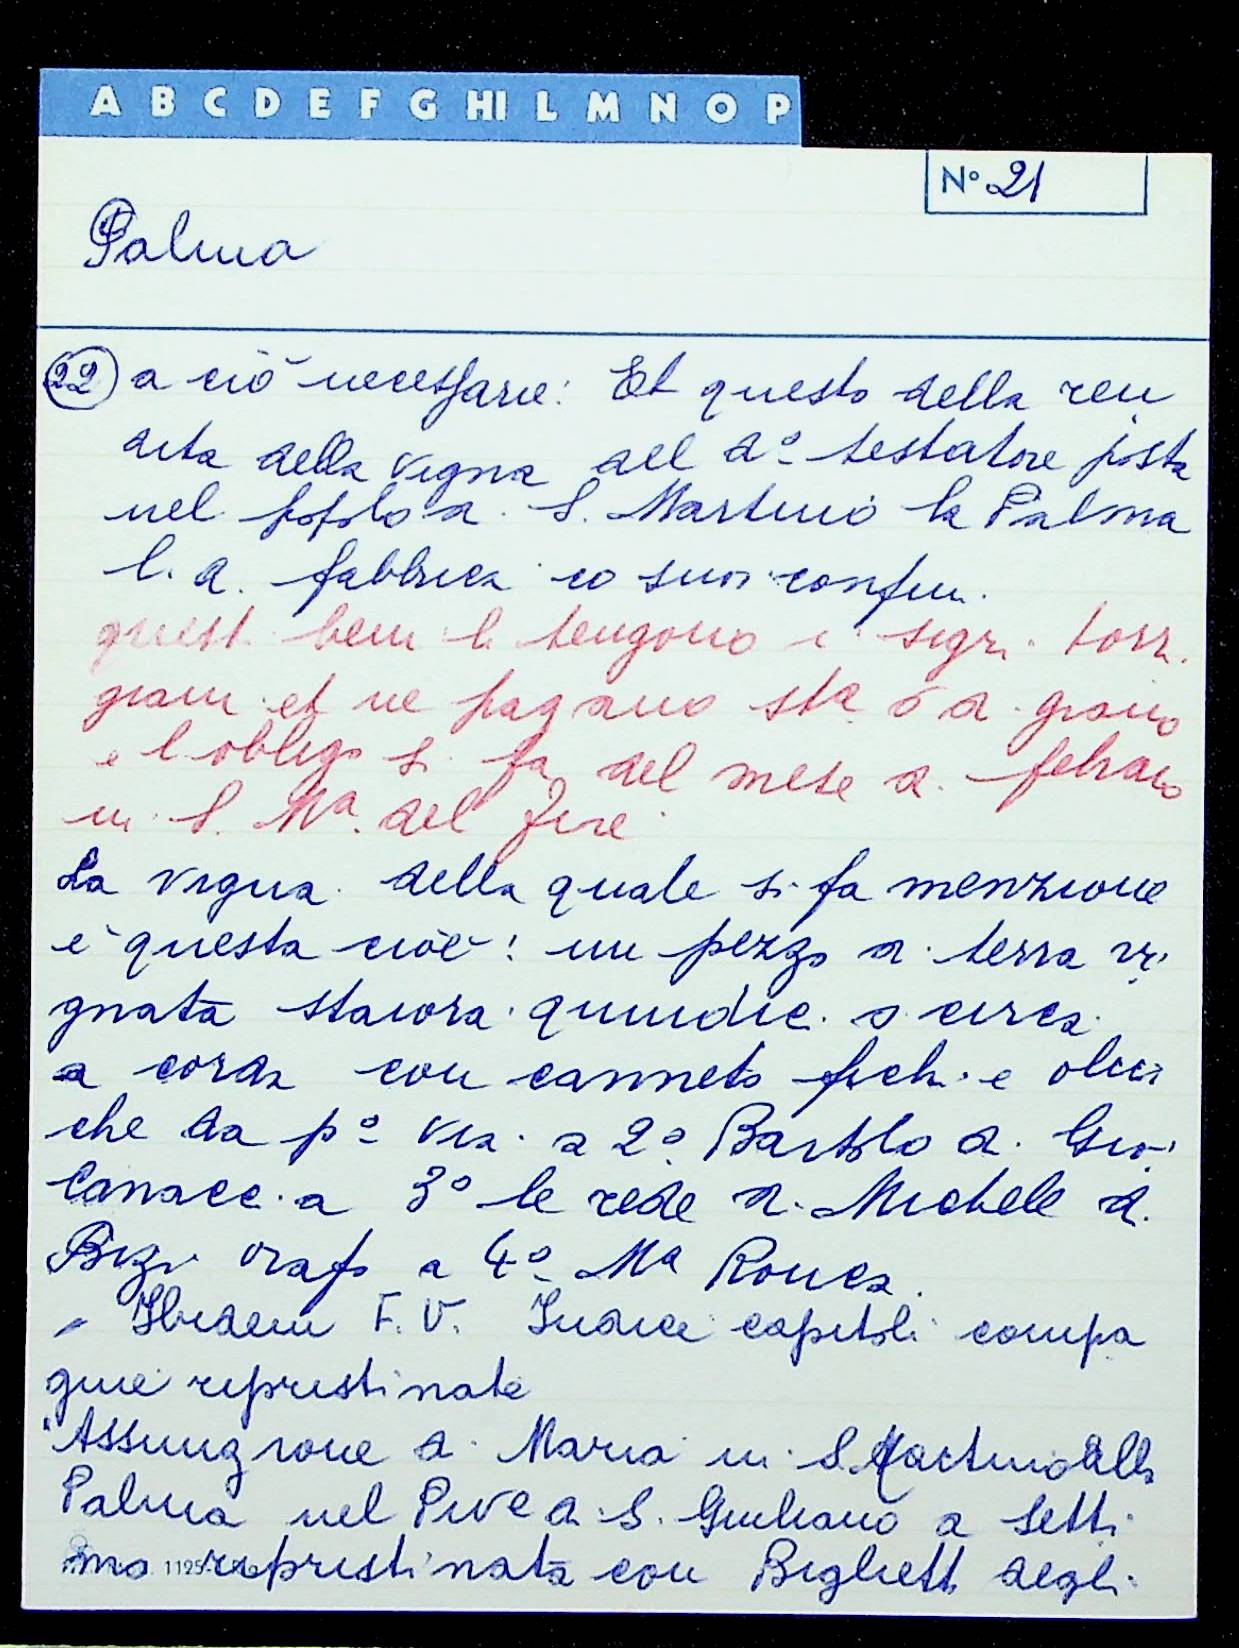 A B C D E F G HI L M N O P
N° 21
Palma
22 a ciò necessarie: Et questo della ren
dita della vigna del d° testatore posta
nel popolo di S. Martino la Palma
l. d. fabbrica co suoi confini.
questi beni li tengono i sigri. torri
giani et ne pagano sta 6 di grano
e l obligo si fa del mese di febraio
in S. Ma. del fiore
La vigna della quale si fa menzione
è questa cioè: un pezzo di terra vi
gnata staiora quindici o circa
a corda con canneto fichi e olivi
che da p° via a 2° Bartolo di Gio.
Canacci a 3° le rede di Michele di
Bizi orafo a 4° Ma Ronca.
Ibidem F. V. Indice capitoli compa
gnie ripristinate
"Assunzione di Maria in S. Martino alla
Palma nel Pive di S. Giuliano a Setti
mo ripristinata con Biglietti degli